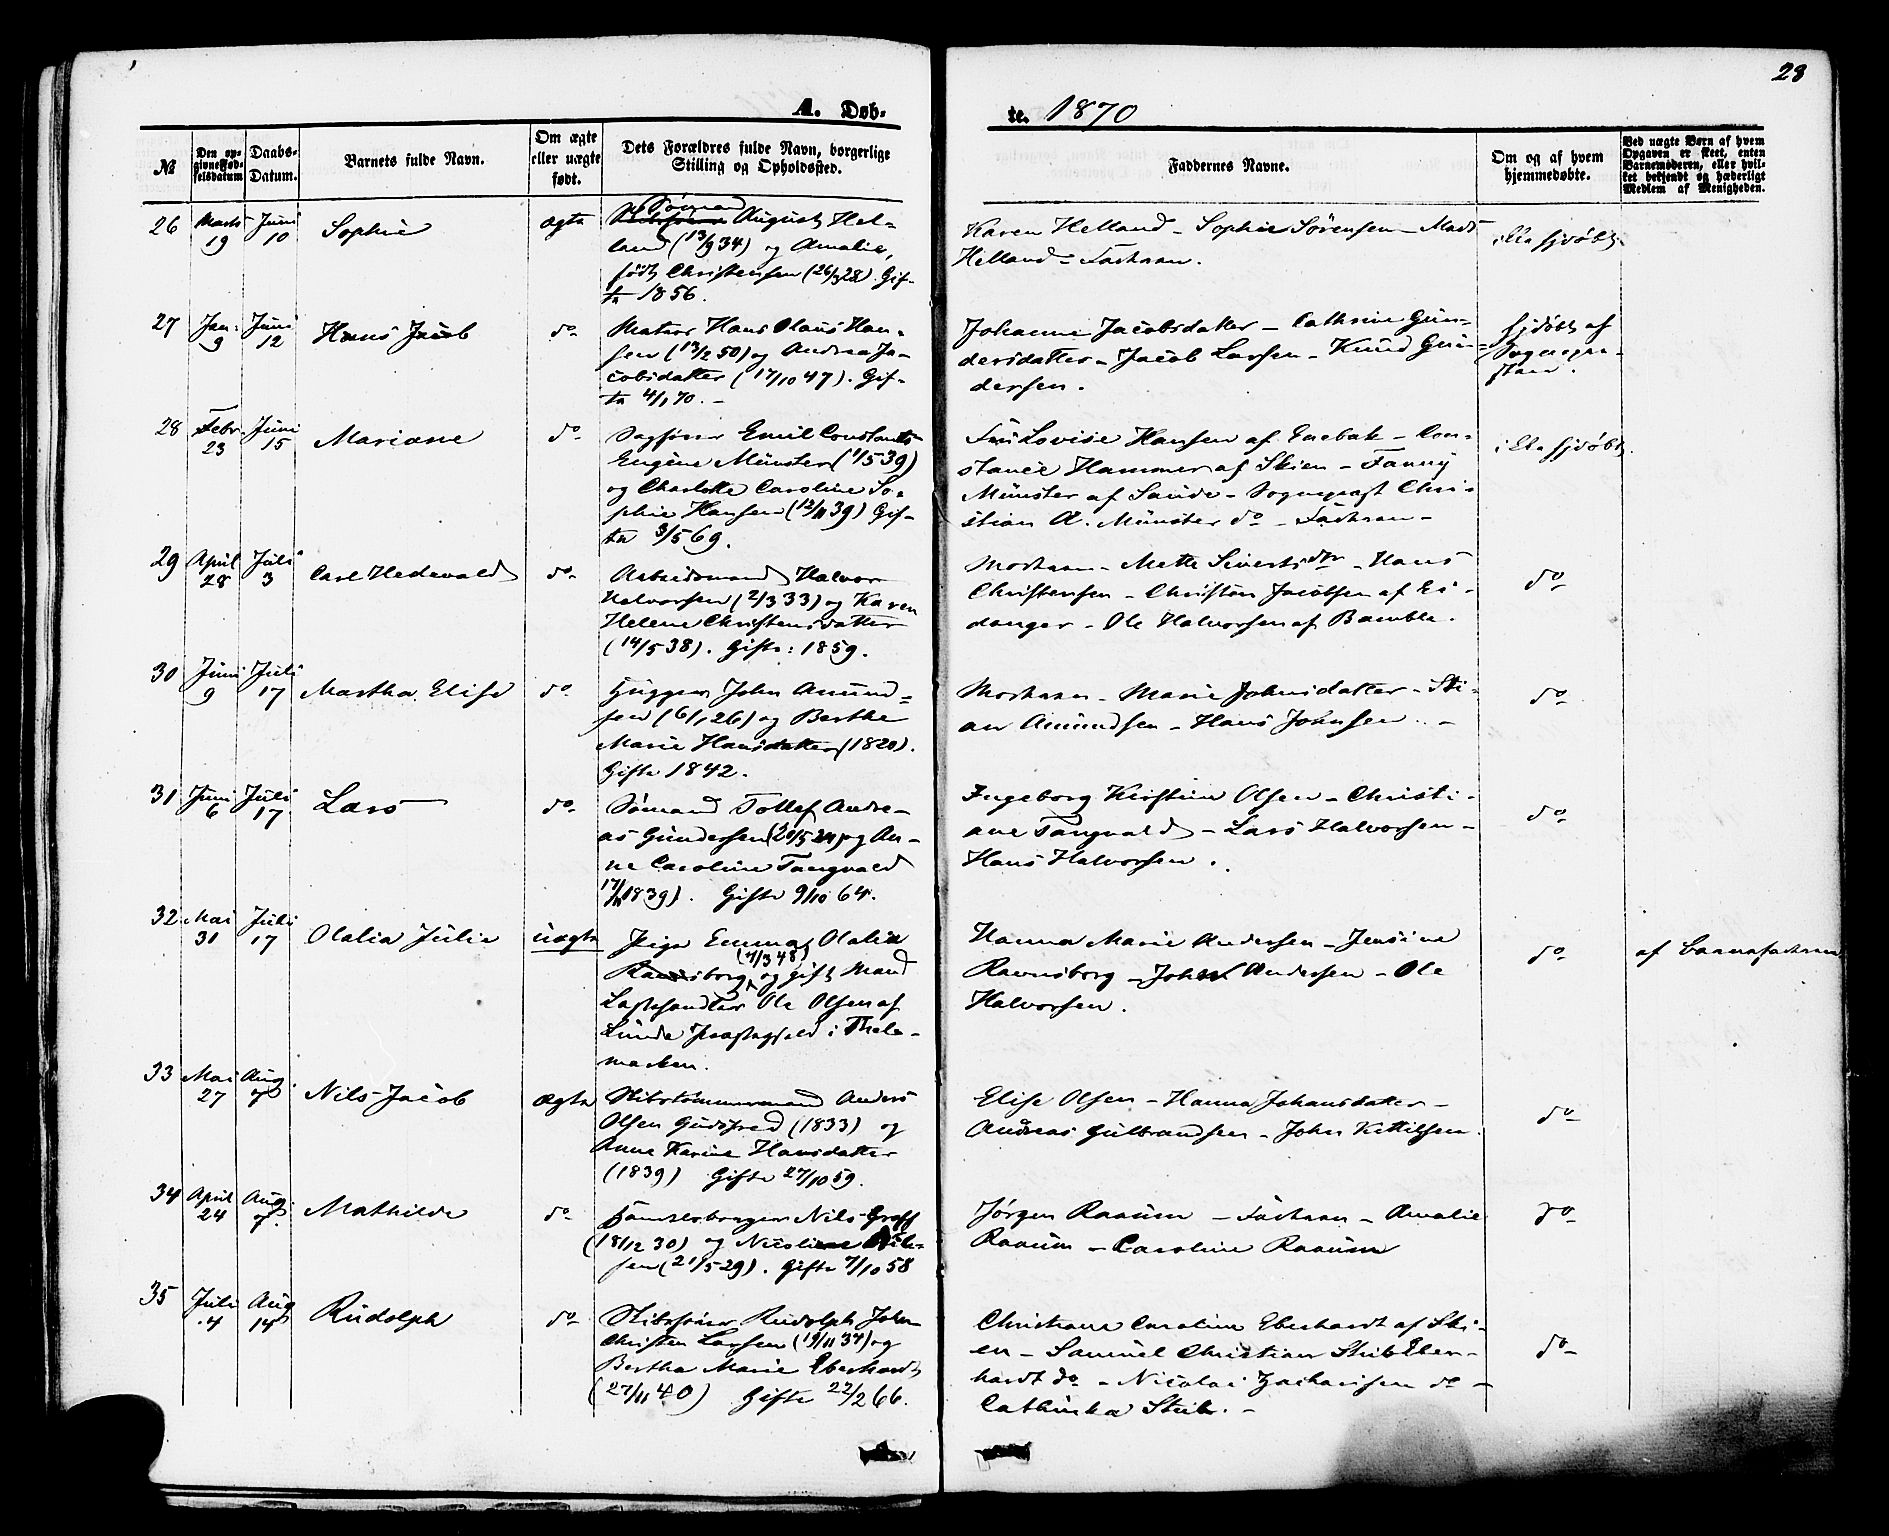 28
A. Døb-
te. 1870
№
Den op-
givne Fød-
selsdatum
Daabs-
Datum.
Barnets fulde Navn.
Om ægte
eller uægte
født.
Dets Forældres fulde Navn, borgerlige
Stilling og Opholdssted.
Faddernes Navne.
Om og af hvem
hjemmedøbte.
Ved uægte Børn af hvem
Opgaven er skeet, enten
Barnemoderen, eller hvil-
ket bekjendt og hæderligt
Medlem af Menigheden.
26
Marts
19
Juni
10
Sophie
ægte
Sømand
August Hel-
land (13/9 34) og Amalie,
født Christensen (26/3 28). Gif-
te 1856.
Karen Helland – Sophie Sørensen – Mads
Helland – Faderen.
ikke hjdøbt
27
Jan:
9
Juni
12
Hans Jacob
do
Matros Hans Olaus Han-
sen (13/2 50) og Andrea Ja-
cobsdatter (17/10 47). Gif-
te 4/1 70. –
Johanne Jacobsdatter – Cathrine Gun-
dersdatter – Jacob Larsen – Knud Gun-
dersen.
hjdøbt af
Sognepre-
sten.
28
Febr.
23
Juni
15
Mariane
do
Sagfører Emil Constants
Eugène Münster (1/5 39)
og Charlotte Caroline So-
phie Hansen (12/11 39) Gif-
te 3/5 69.
Frk Lovise Hansen af Enebak – Con-
stance Hammer af Skien – Fanny
Münster af Saude – Sogneprest Chri-
stian A. Münster do – Faderen –
ikke hjdøbt.
29
April
28
Juli
3
Carl Hedevald
do
Arbeidsmand Halvor
Halvorsen (2/3 33) og Karen
Helene Christensdatter
(14/5 38). Gifte: 1859.
Moderen – Mette Sivertsdtr – Hans
Christensen – Christen Jacobsen af Ei-
danger – Ole Halvorsen af Bamble.
do
30
Juni
9
Juli
17
Martha Elise
do
Hugger John Amund-
sen (6/1 26) og Berthe
Marie Hansdatter (1820).
Gifte 1842.
Moderen – Marie Johnsdatter – Sti-
an Amundsen – Hans Johnsen –
do
31
Juni
6
Juli
17
Lars
do
Sømand Tollef Andre-
as Gundersen (20/5 24) og An-
ne Caroline Tangvald
17/11 1839). Gifte 9/10 64.
Ingeborg Kirstine Olsen – Christi-
ane Tangvald – Lars Halvorsen –
Hans Halvorsen.
do
32
Mai
31
Juli
17
Olalia Julie
uægte
Pige Emma Olalia
(7/3 48)
Ravnsborg og gift Mand
Lastehandler Ole Olsen af
Lunde Præstegjeld i Thele-
marken.
Hanna Marie Andersen – Jensine
Ravnsborg – Johan Andersen – Ole
Halvorsen.
do
af Barnefaderen
33
Mai
27
Aug.
7
Nils Jacob
ægte
Skibstømmermand Anders
Olsen Gudsfred (1833) og
Anne Karine Hansdatter
(1839) Gifte 27/10 59.
Elise Olsen – Hanna Johansdatter –
Andreas Gulbrandsen – John Kittilsen.
do
34
April
24
Aug.
7.
Mathilde
do
Handelsborger Nils Graff
(18/12 30) og Nicoline Niel-
sen (21/5 29). Gifte 7/10 58
Jørgen Raaum – Faderen – Amalie
Raaum – Caroline Raaum
do
35
Juli
4
Aug
14
Rudolph
do
Skibsfører Rudolph John
Christen Larsen (19/11 34) og
Bertha Marie Eberhardt
(27/11 40) Gifte 22/2 66.
Christiane Caroline Eberhardt af Ski-
en – Samuel Christian Stub Eber-
hardt do – Nicolai Zachariasen do –
Cathinka Stub. –
do